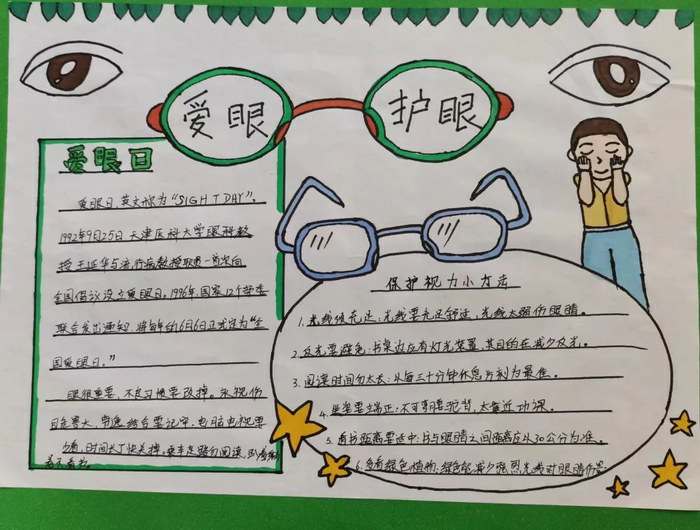 爱眼 护眼
爱眼日
爱眼日,英文称为“SIGHT DAY”,
1992年9月25日天津医科大学眼科教
授王延华与流行病教授耿贯一首次向
全国倡议设立爱眼日。1996年,国家12个部委
联合发出通知,将每年的6月6日正式定为“全
国爱眼日。”
眼很重要,不良习惯要改掉。
危害大,
看,时间长了快关掉,乘车走路勿阅读,卧
着不看书。
保护视力小方法
1.光线须充足:光线要充足舒适,光线太弱伤眼睛。
2.反光要避免:书桌边应有灯光装置,其目的在减少反光。
3.阅读时间勿太长:以每三十分钟休息片刻为最佳。
4.坐姿要端正:不可弯腰驼背,太靠近功课。
5.看书距离要适中:书与眼睛之间距离应以30公分为准。
6.多看绿色植物:绿色能减少强烈光线对眼睛伤害。